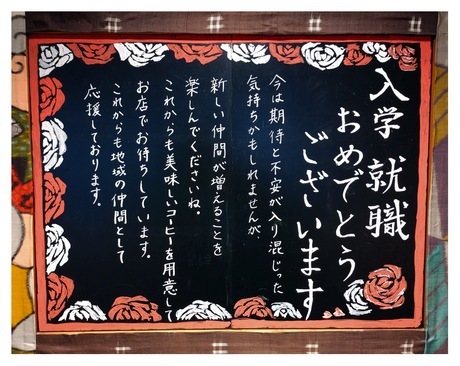 入学 就職
おめでとう
ございます
今は期待と不安が入り混じった
気持ちかもしれませんが、
新しい仲間が増えることを
楽しんでくださいね。
これからも美味しいコーヒーを用意して
お店でお待ちしています。
これからも地域の仲間として
応援しております。